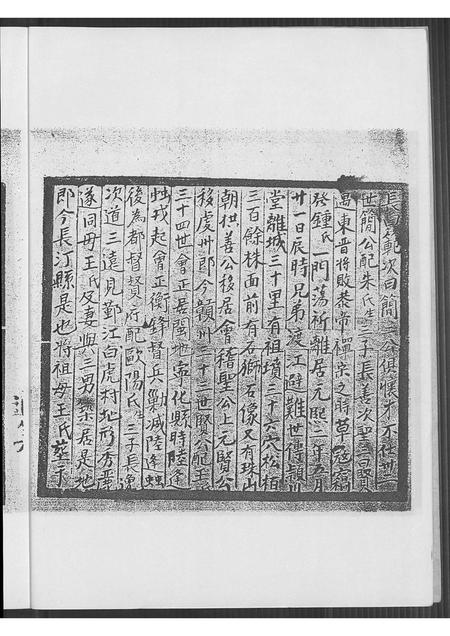 長曰範次曰簡三公俱懷才不仕世三
世簡公配朱氏生三子長善次聖三曰賢公
昌東晋將敗恭帝禪宗之時草寇猖
發鍾氏一門蕩祈離居元熙二年五月
廿一日辰時兄弟渡江避難世傳頴川
堂離城三十里有祖墳三十六穴松栢
三百餘株面前有石獅石像又有珠山
朝拱善公移居會稽聖公上元賢公
移虔州即今贛州三十三世賢公配王氏
三十四世會正居閩地寧化縣時陸逢
蝕戎起會正衡鋒督兵勦滅陸逢蝕
後為都督賢府配歐陽氏生三子長逸
次道三遠見鄞江白虎村地形秀麗
遂同母王氏及妻與三男築居是地
即今長汀縣是也將祖母王氏塟于